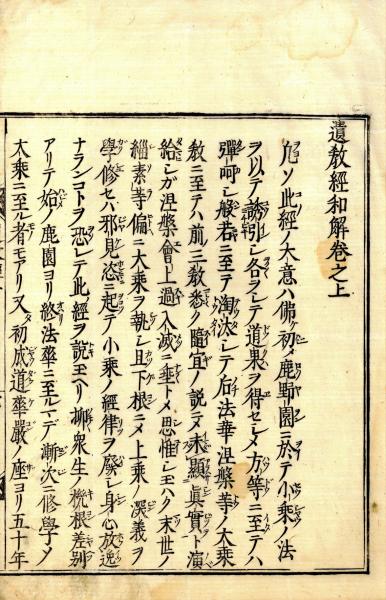 遺教經和解卷之上
凡ソ此經ノ大意ハ佛初メ鹿野園ニ於テ小乘ノ法
ヲ以テ誘引シ各ヲシテ道果ヲ得セシメ方等ニ至テハ
彈呵シ般若ニ至テ淘汰シテ后法華涅槃等ノ大乘
教ニ至テハ前三教悉ク隨宜ノ説ニメ未顯眞實ト演
給シガ涅槃會上過入滅ニ垂トメ思惟シ玉ハク末世ノ
緇素等偏ニ大乘ヲ執シ且下根ニメ上乘ノ深義ヲ
學修セバ邪見恣ニ起テ小乘ノ經律ヲ廢シ身心放逸
ナランコトヲ恐レテ此經ヲ説玉ヘリ抑衆生ノ機根差別
アリテ始ノ鹿園ヨリ終法華ニ至ルマデ漸次ニ修學メ
大乘ニ至ル者モアリ又初成道華嚴ノ座ヨリ五十年